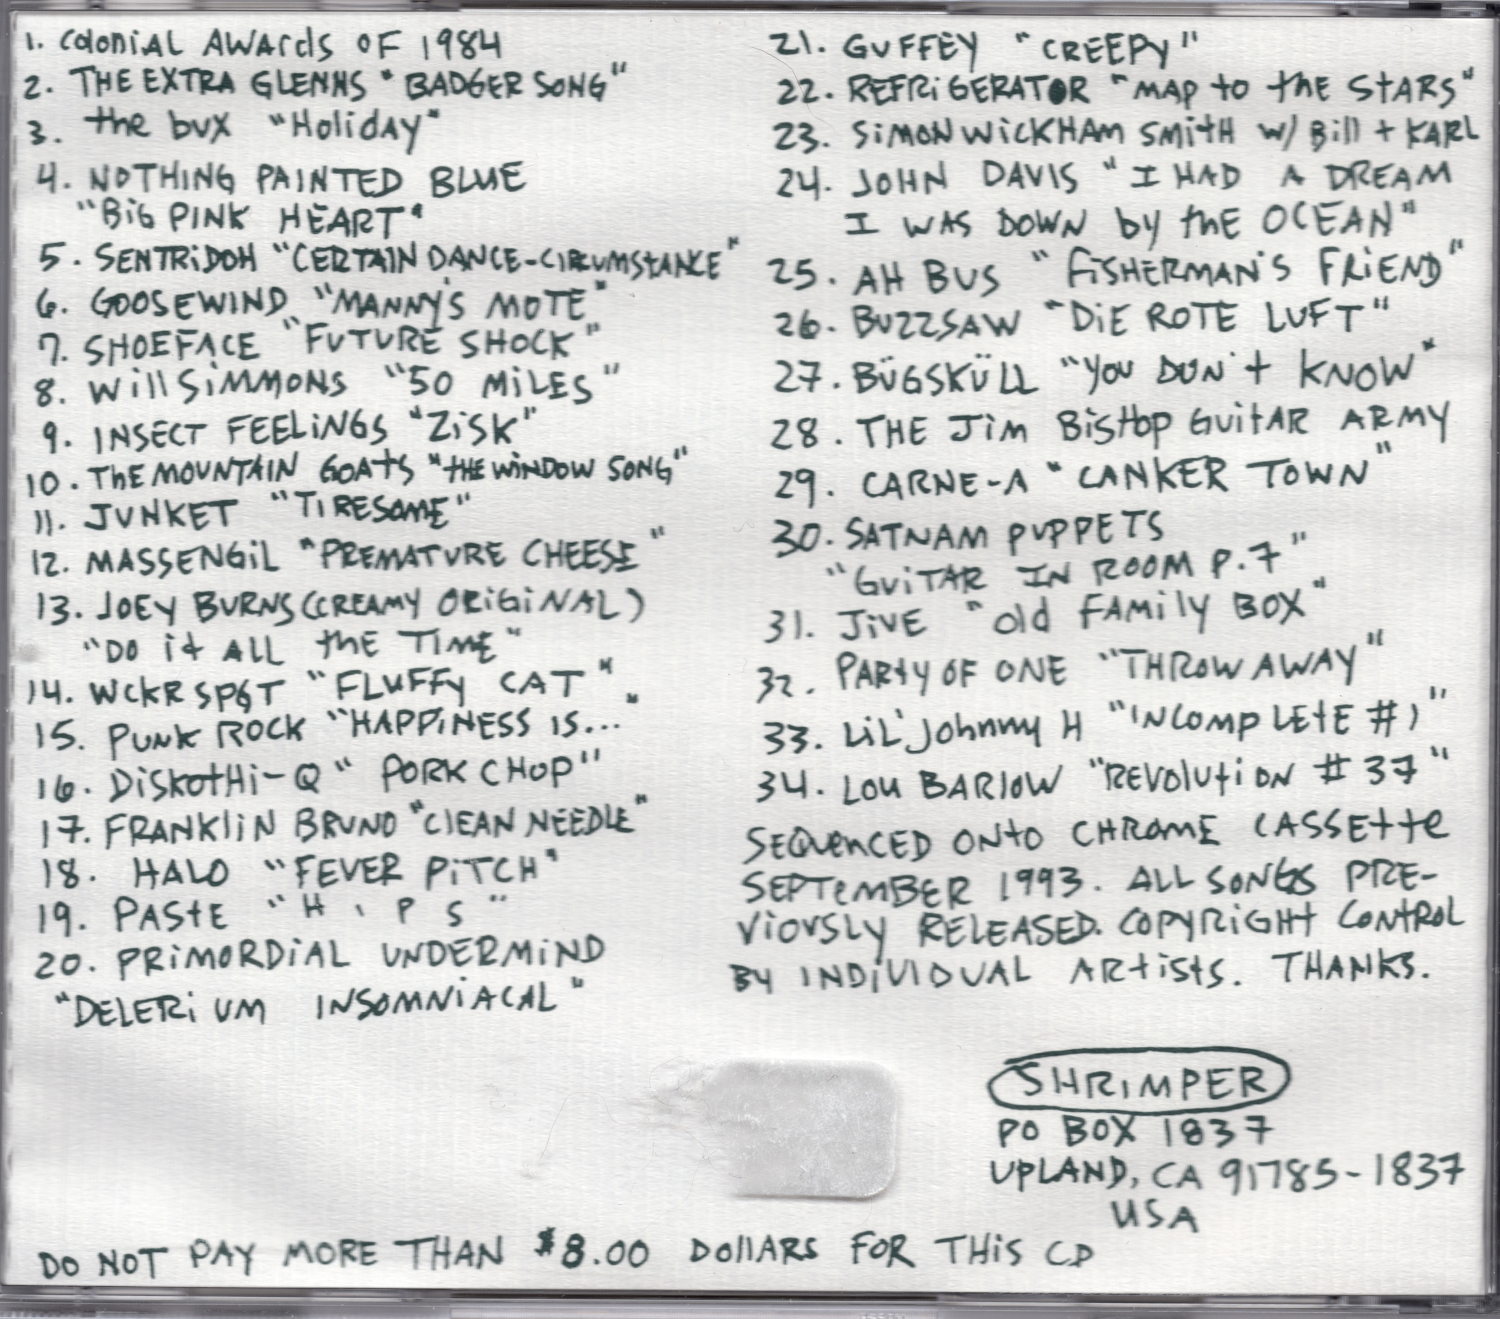 1. COLONIAL AWARDS OF 1984
2. THE EXTRA GLENNS "BADGER SONG"
3. the bux "Holiday"
4. NOTHING PAINTED BLUE
"BiG PINK HEART"
5. SENTRiDOH "CERTAIN DANCE-CIRCUMSTANCE"
6. GOOSEWIND "MANNY'S MOTE"
7. SHOEFACE "FUTURE SHOCK"
8. Will SiMMONS "50 MiLES"
9. INSECT FEELiNGS "ZiSK"
10. THE MOUNTAIN GOATS "the WINDOW SONG"
11. JUNKET "TIRESOME"
12. MASSENGiL "PREMATURE CHEESE"
13. JOEY BURNS (CREAMY ORiGiNAL)
"DO it ALL the TIME"
14. WCKR SPGT "FLUFFY CAT"
15. PUNK ROCK "HAPPiNESS IS..."
16. DiSKOTHi-Q "PORK CHOP"
17. FRANKLiN BRUNO "CLEAN NEEDLE"
18. HALO "FEVER PiTCH"
19. PASTE "H I P S"
20. PRiMORDiAL UNDERMiND
"DELERiUM INSOMNiACAL"
21. GUFFEY "CREEPY"
22. REFRiGERATOR "MAP to the STARS"
23. SiMON WiCKHAM SMitH W/ Bill + KARL
24. JOHN DAVIS "I HAD A DREAM
I WAS DOWN by the OCEAN"
25. AH BUS "FiSHERMAN'S FRiEND"
26. BUZZSAW "DiE ROTE LUFT"
27. BÜGSKÜLL "YOU DON't KNOW"
28. THE Jim BiSHOP GUitAR ARMY
29. CARNE-A "CANKER TOWN"
30. SATNAM PUPPETS
"GUiTAR IN ROOM P.7"
31. JiVE "Old FAMily BOX"
32. PARty OF ONE "THROW AWAY"
33. LiL' Johnny H "INCOMPLEtE #1"
34. LOU BARLOW "REVOLUtiON #37"
SEQUENCED ONtO CHROME CASSEtte
SEPTEMBER 1993. ALL SONGS PRE-
ViOUSLY RELEASED. COPYRiGHt CONtROL
BY INDiViDUAL ARtiSts. THANKS.
SHRiMPER
PO BOX 1837
UPLAND, CA 91785-1837
USA
DO NOT PAY MORE THAN $8.00 DOllARS FOR THiS CD